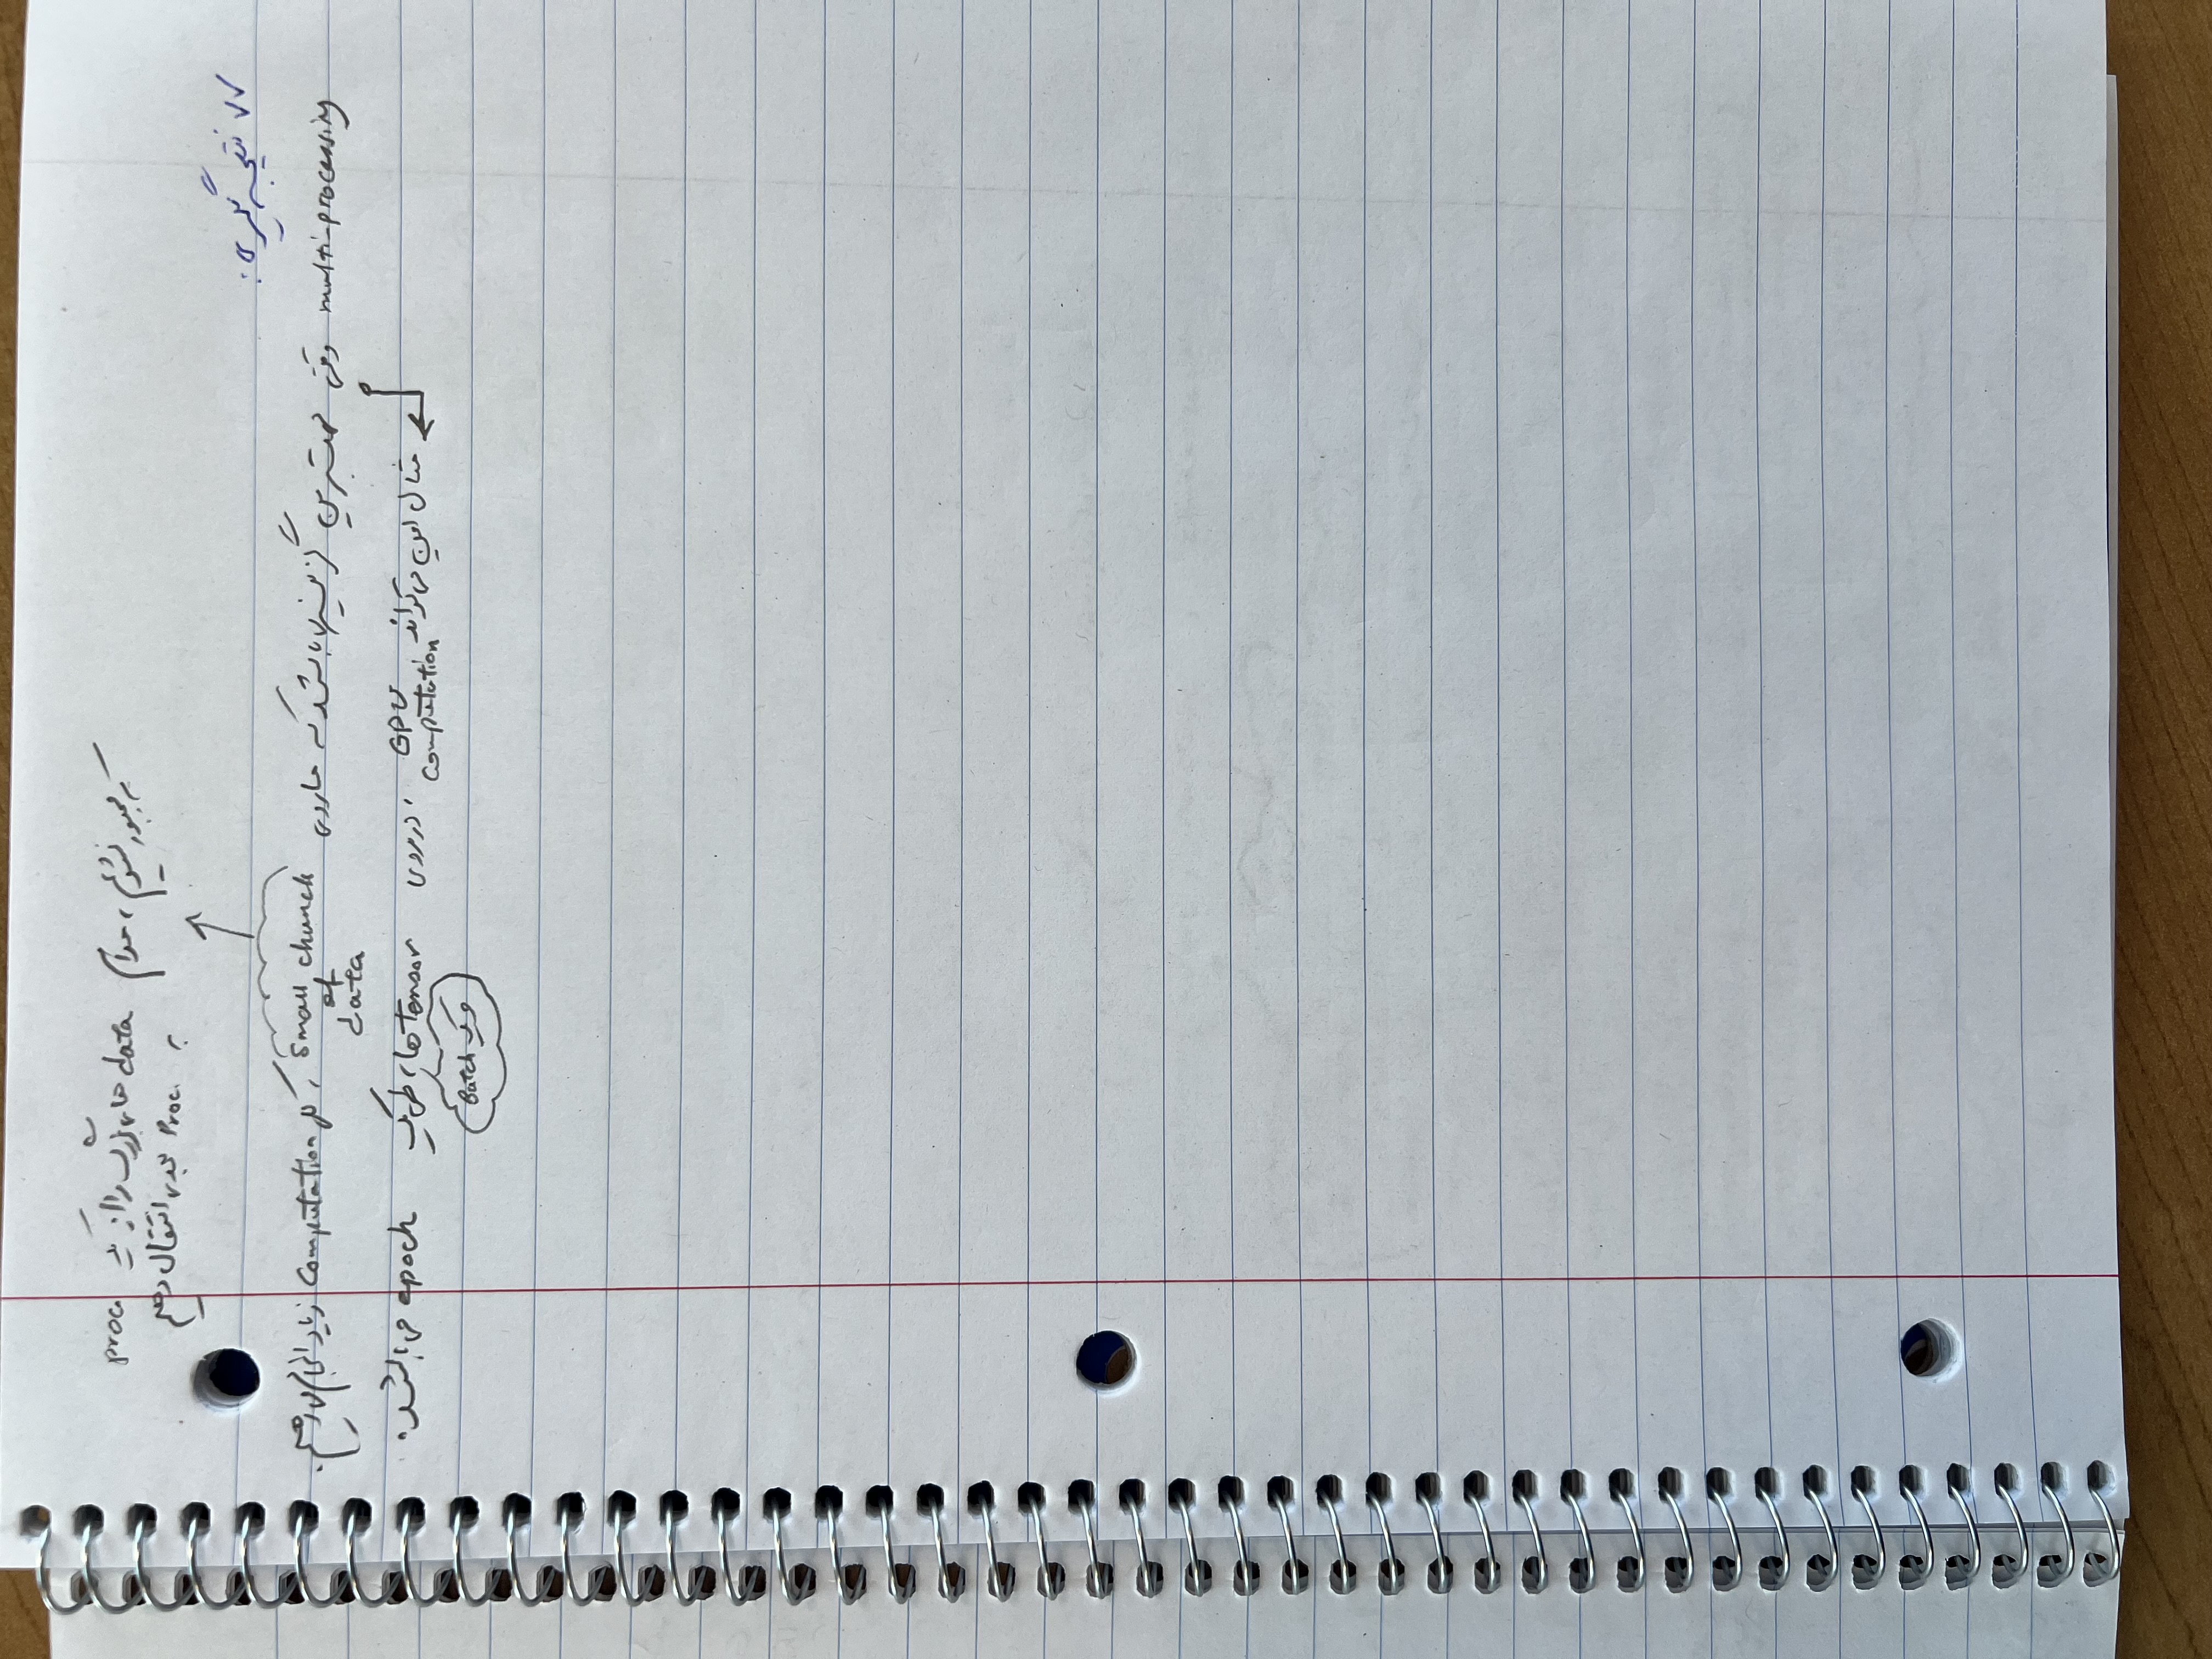 که مجبور نشویم، مدام data های بزرگ را از یک proc.
به proc. بعدی انتقال دهیم
✓✓ نتیجه گیری:
multi-processing وقتی بهترین گزینه می باشد که ما روی small chunck of data، کلی computation زیاد انجام می دهیم.
مثال این می تواند GPU computation، در روی tensor ها، طی یک epoch می باشد.
و یک Batch